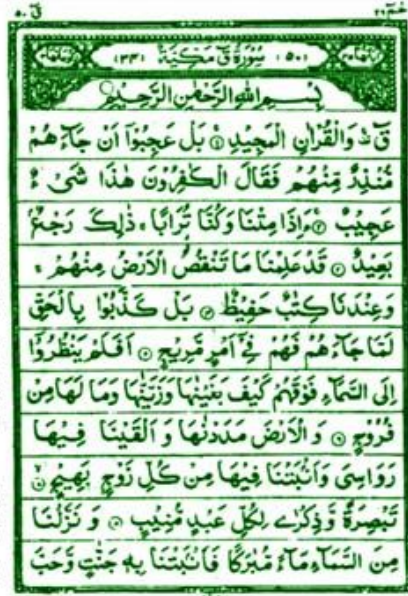 قٓ ٥٠ حٰمٓ ٢٦
(٥٠) سُوْرَةُ قٓ مَكِّيَّةٌ (٣٤)
بِسْمِ اللّٰهِ الرَّحْمٰنِ الرَّحِيْمِ
قٓ ۛ وَالْقُرْاٰنِ الْمَجِيْدِ ۝١ بَلْ عَجِبُوْٓا اَنْ جَآءَهُمْ
مُّنْذِرٌ مِّنْهُمْ فَقَالَ الْكٰفِرُوْنَ هٰذَا شَيْءٌ
عَجِيْبٌ ۝٢ ءَاِذَا مِتْنَا وَكُنَّا تُرَابًا ۚ ذٰلِكَ رَجْعٌۢ
بَعِيْدٌ ۝٣ قَدْ عَلِمْنَا مَا تَنْقُصُ الْاَرْضُ مِنْهُمْ ۚ
وَعِنْدَنَا كِتٰبٌ حَفِيْظٌ ۝٤ بَلْ كَذَّبُوْا بِالْحَقِّ
لَمَّا جَآءَهُمْ فَهُمْ فِيْٓ اَمْرٍ مَّرِيْجٍ ۝٥ اَفَلَمْ يَنْظُرُوْٓا
اِلَى السَّمَآءِ فَوْقَهُمْ كَيْفَ بَنَيْنٰهَا وَزَيَّنّٰهَا وَمَا لَهَا مِنْ
فُرُوْجٍ ۝٦ وَالْاَرْضَ مَدَدْنٰهَا وَاَلْقَيْنَا فِيْهَا
رَوَاسِيَ وَاَنْۢبَتْنَا فِيْهَا مِنْ كُلِّ زَوْجٍۭ بَهِيْجٍ ۝٧
تَبْصِرَةً وَّذِكْرٰى لِكُلِّ عَبْدٍ مُّنِيْبٍ ۝٨ وَنَزَّلْنَا
مِنَ السَّمَآءِ مَآءً مُّبٰرَكًا فَاَنْۢبَتْنَا بِهٖ جَنّٰتٍ وَّحَبَّ